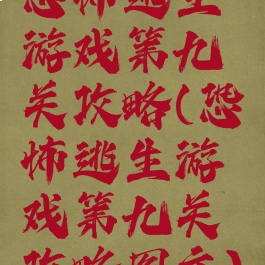 恐怖逃生
游戏第九
关攻略(恐
怖逃生游
戏第九关
攻略图文)